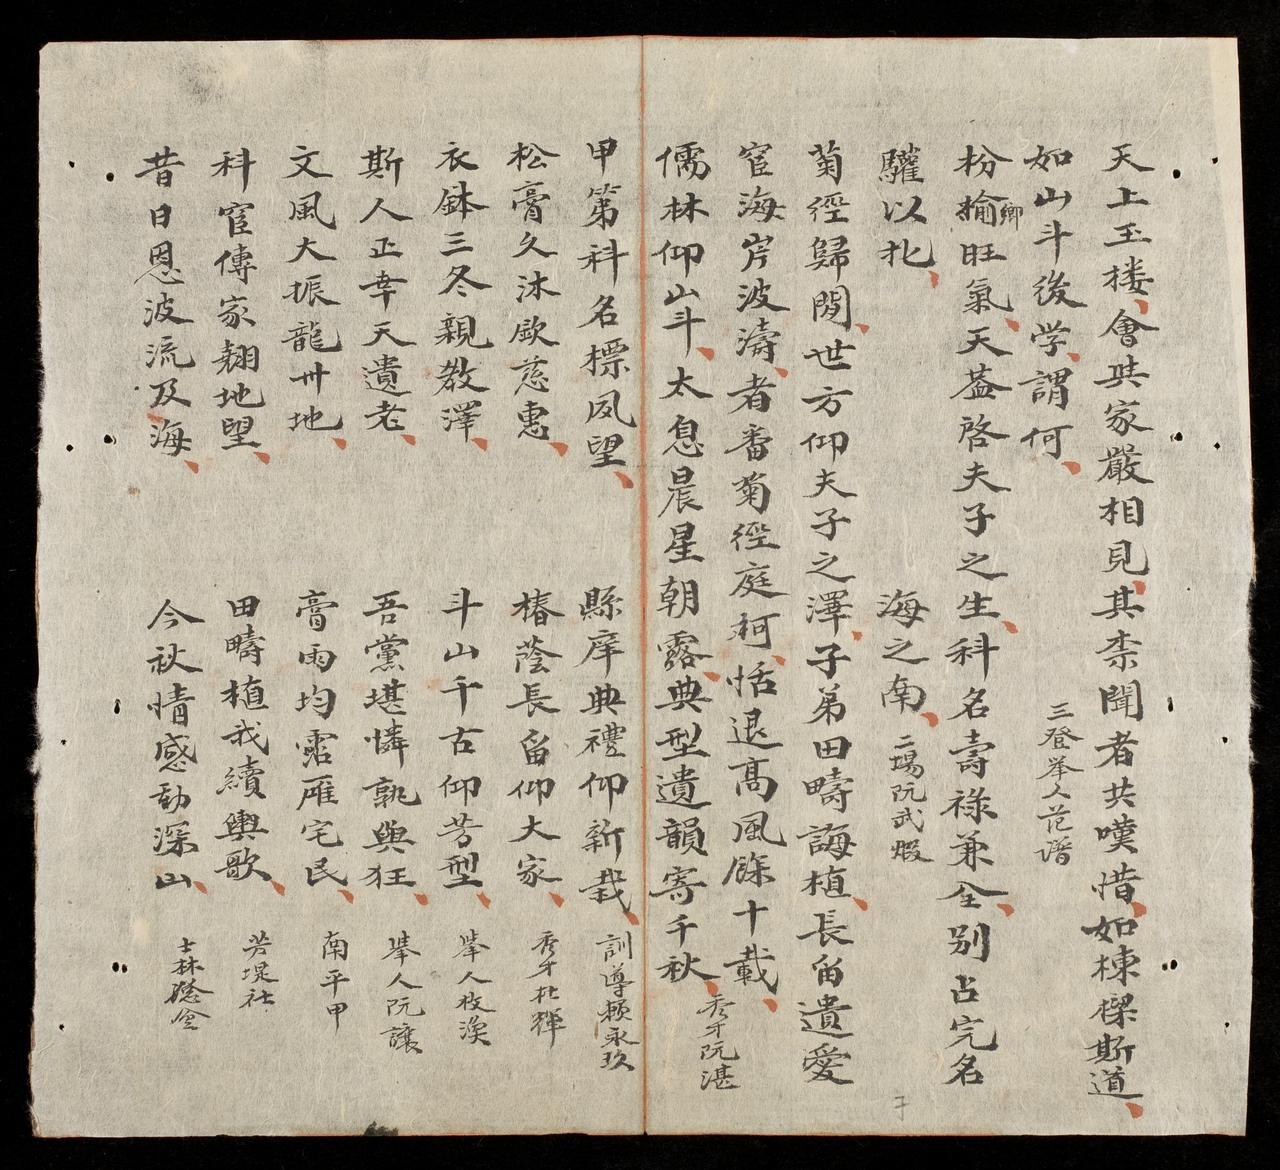 天上玉楼會共家嚴相見其柰聞者共嘆惜如棟樑斯道
如山斗後学謂何
三登举人范谱
枌榆鄉旺氣天葢啓夫子之生科名壽祿兼全别占完名
驩以北
海之南
二場阮武煆
菊徑歸閒世方仰夫子之澤子弟田疇誨植長畄遺愛
宦海岸波濤者番菊徑庭柯恬退高風餘十載
儒林仰山斗太息晨星朝露典型遺韻寄千秋
秀才阮湛
甲第科名標夙望
縣庠典禮仰新裁
訓導賴永玖
松膏久沐歐慈惠
椿蔭長畄仰大家
秀才杜輝
衣鉢三冬親教澤
斗山千古仰芳型
举人枚渙
斯人正幸天遺老
吾黨堪憐孰與狂
举人阮讓
文風大振龍卅地
膏雨均霑雁宅民
南平甲
科宦傳家翹地望
田疇植我續輿歌
芳堤社
昔日恩波流及海
今秋情感動深山
士林㑹